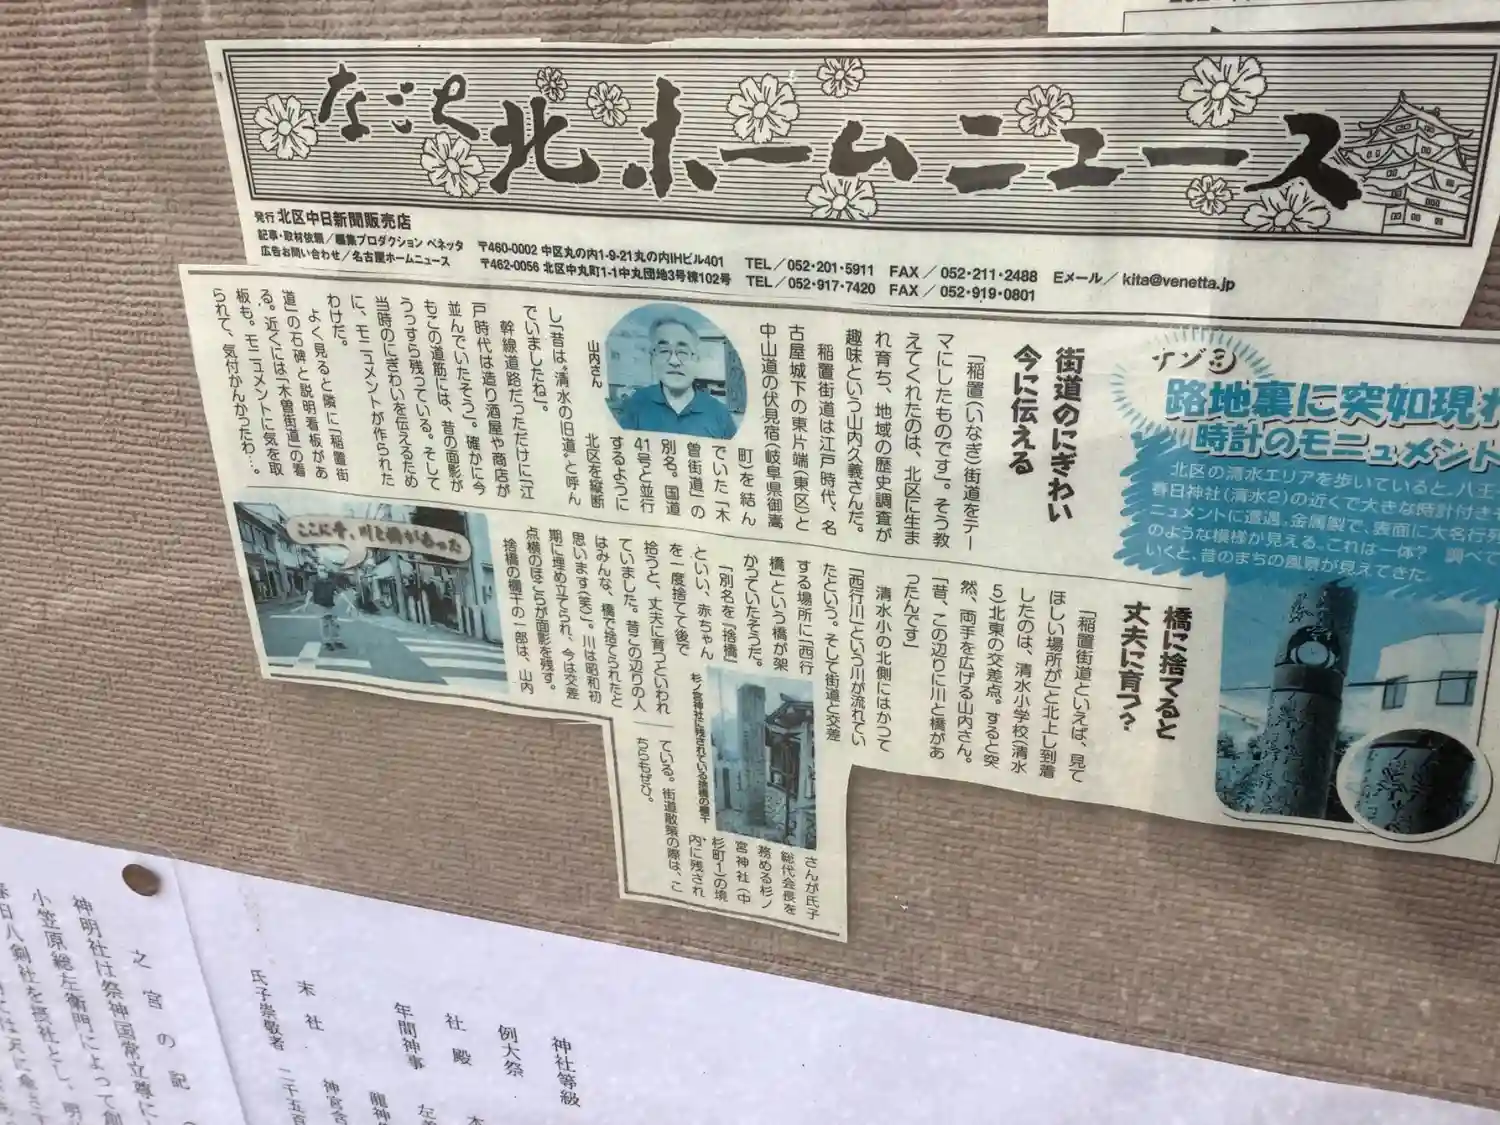 なごや北ホームニュース
発行 北区中日新聞販売店
記事・取材依頼／編集プロダクション ベネッタ 〒460-0002 中区丸の内1-9-21丸の内IHビル401 TEL／052・201・5911 FAX／052・211・2488 Eメール／kita@venetta.jp
広告お問い合わせ／名古屋ホームニュース 〒462-0056 北区中丸町1-1中丸団地3号棟102号 TEL／052・917・7420 FAX／052・919・0801
ナゾ③
路地裏に突如現れ
時計のモニュメント
北区の清水エリアを歩いていると、八王
春日神社(清水2)の近くで大きな時計付きモ
ニュメントに遭遇。金属製で、表面に大名行列
のような模様が見える。これは一体? 調べて
いくと、昔のまちの風景が見えてきた。
街道のにぎわい
今に伝える
「稲置(いなぎ)街道をテー
マにしたものです」。そう教
えてくれたのは、北区に生ま
れ育ち、地域の歴史調査が
趣味という山内久義さんだ。
稲置街道は江戸時代、名
古屋城下の東片端(東区)と
中山道の伏見宿(岐阜県御嵩
町)を結ん
でいた「木
曽街道」の
別名。国道
41号と並行
するように
北区を縦断
山内さん
し「昔は“清水の旧道”と呼ん
でいましたね」。
幹線道路だっただけに「江
戸時代は造り酒屋や商店が
並んでいたそう」。確かに今
もこの道筋には、昔の面影が
うっすら残っている。そして
当時のにぎわいを伝えるため
に、モニュメントが作られた
わけだ。
よく見ると隣に「稲置街
道」の石碑と説明看板があ
る。近くには「木曽街道」の看
板も。モニュメントに気を取
られて、気付かんかったわ…。
橋に捨てると
丈夫に育つ??
「稲置街道といえば、見て
ほしい場所が」と北上し到着
したのは、清水小学校(清水
5)北東の交差点。すると突
然、両手を広げる山内さん。
「昔、この辺りに川と橋があ
ったんです」
清水小の北側にはかつて
「西行川」という川が流れてい
たという。そして街道と交差
する場所に「西行
橋」という橋が架
かっていたそうだ。
「別名を『捨橋』
といい、赤ちゃん
を一度捨てて後で
拾うと、丈夫に育つといわれ
ていました。昔この辺りの人
はみんな、橋で捨てられたと
思います(笑)」。川は昭和初
期に埋め立てられ、今は交差
点横のほこらが面影を残す。
捨橋の欄干の一部は、山内
さんが氏子
総代会長を
務める杉ノ
宮神社(中
杉町1)の境
内に残され
ている。街道散策の際は、こ
ちらもぜひ。
杉ノ宮神社に残されている捨橋の欄干
ここに昔、川と橋があった
神社等級
例大祭
社殿
年間神事
末社
氏子崇敬者 二千五百
之宮の記
神明社は祭神国常立尊に
小笠原総左衛門によって創
春日八剣社を摂社とし、明